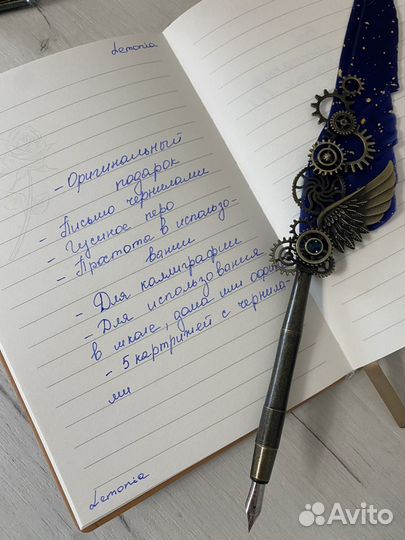 Lemonia
- Оригинальный
подарок
- Письмо чернилами
- Гусиное перо
- Простота в использо-
вании
- Для каллиграфии
- Для использования
в школе, дома или офисе
- 5 картриджей с чернила-
ми
Lemonia
Avito